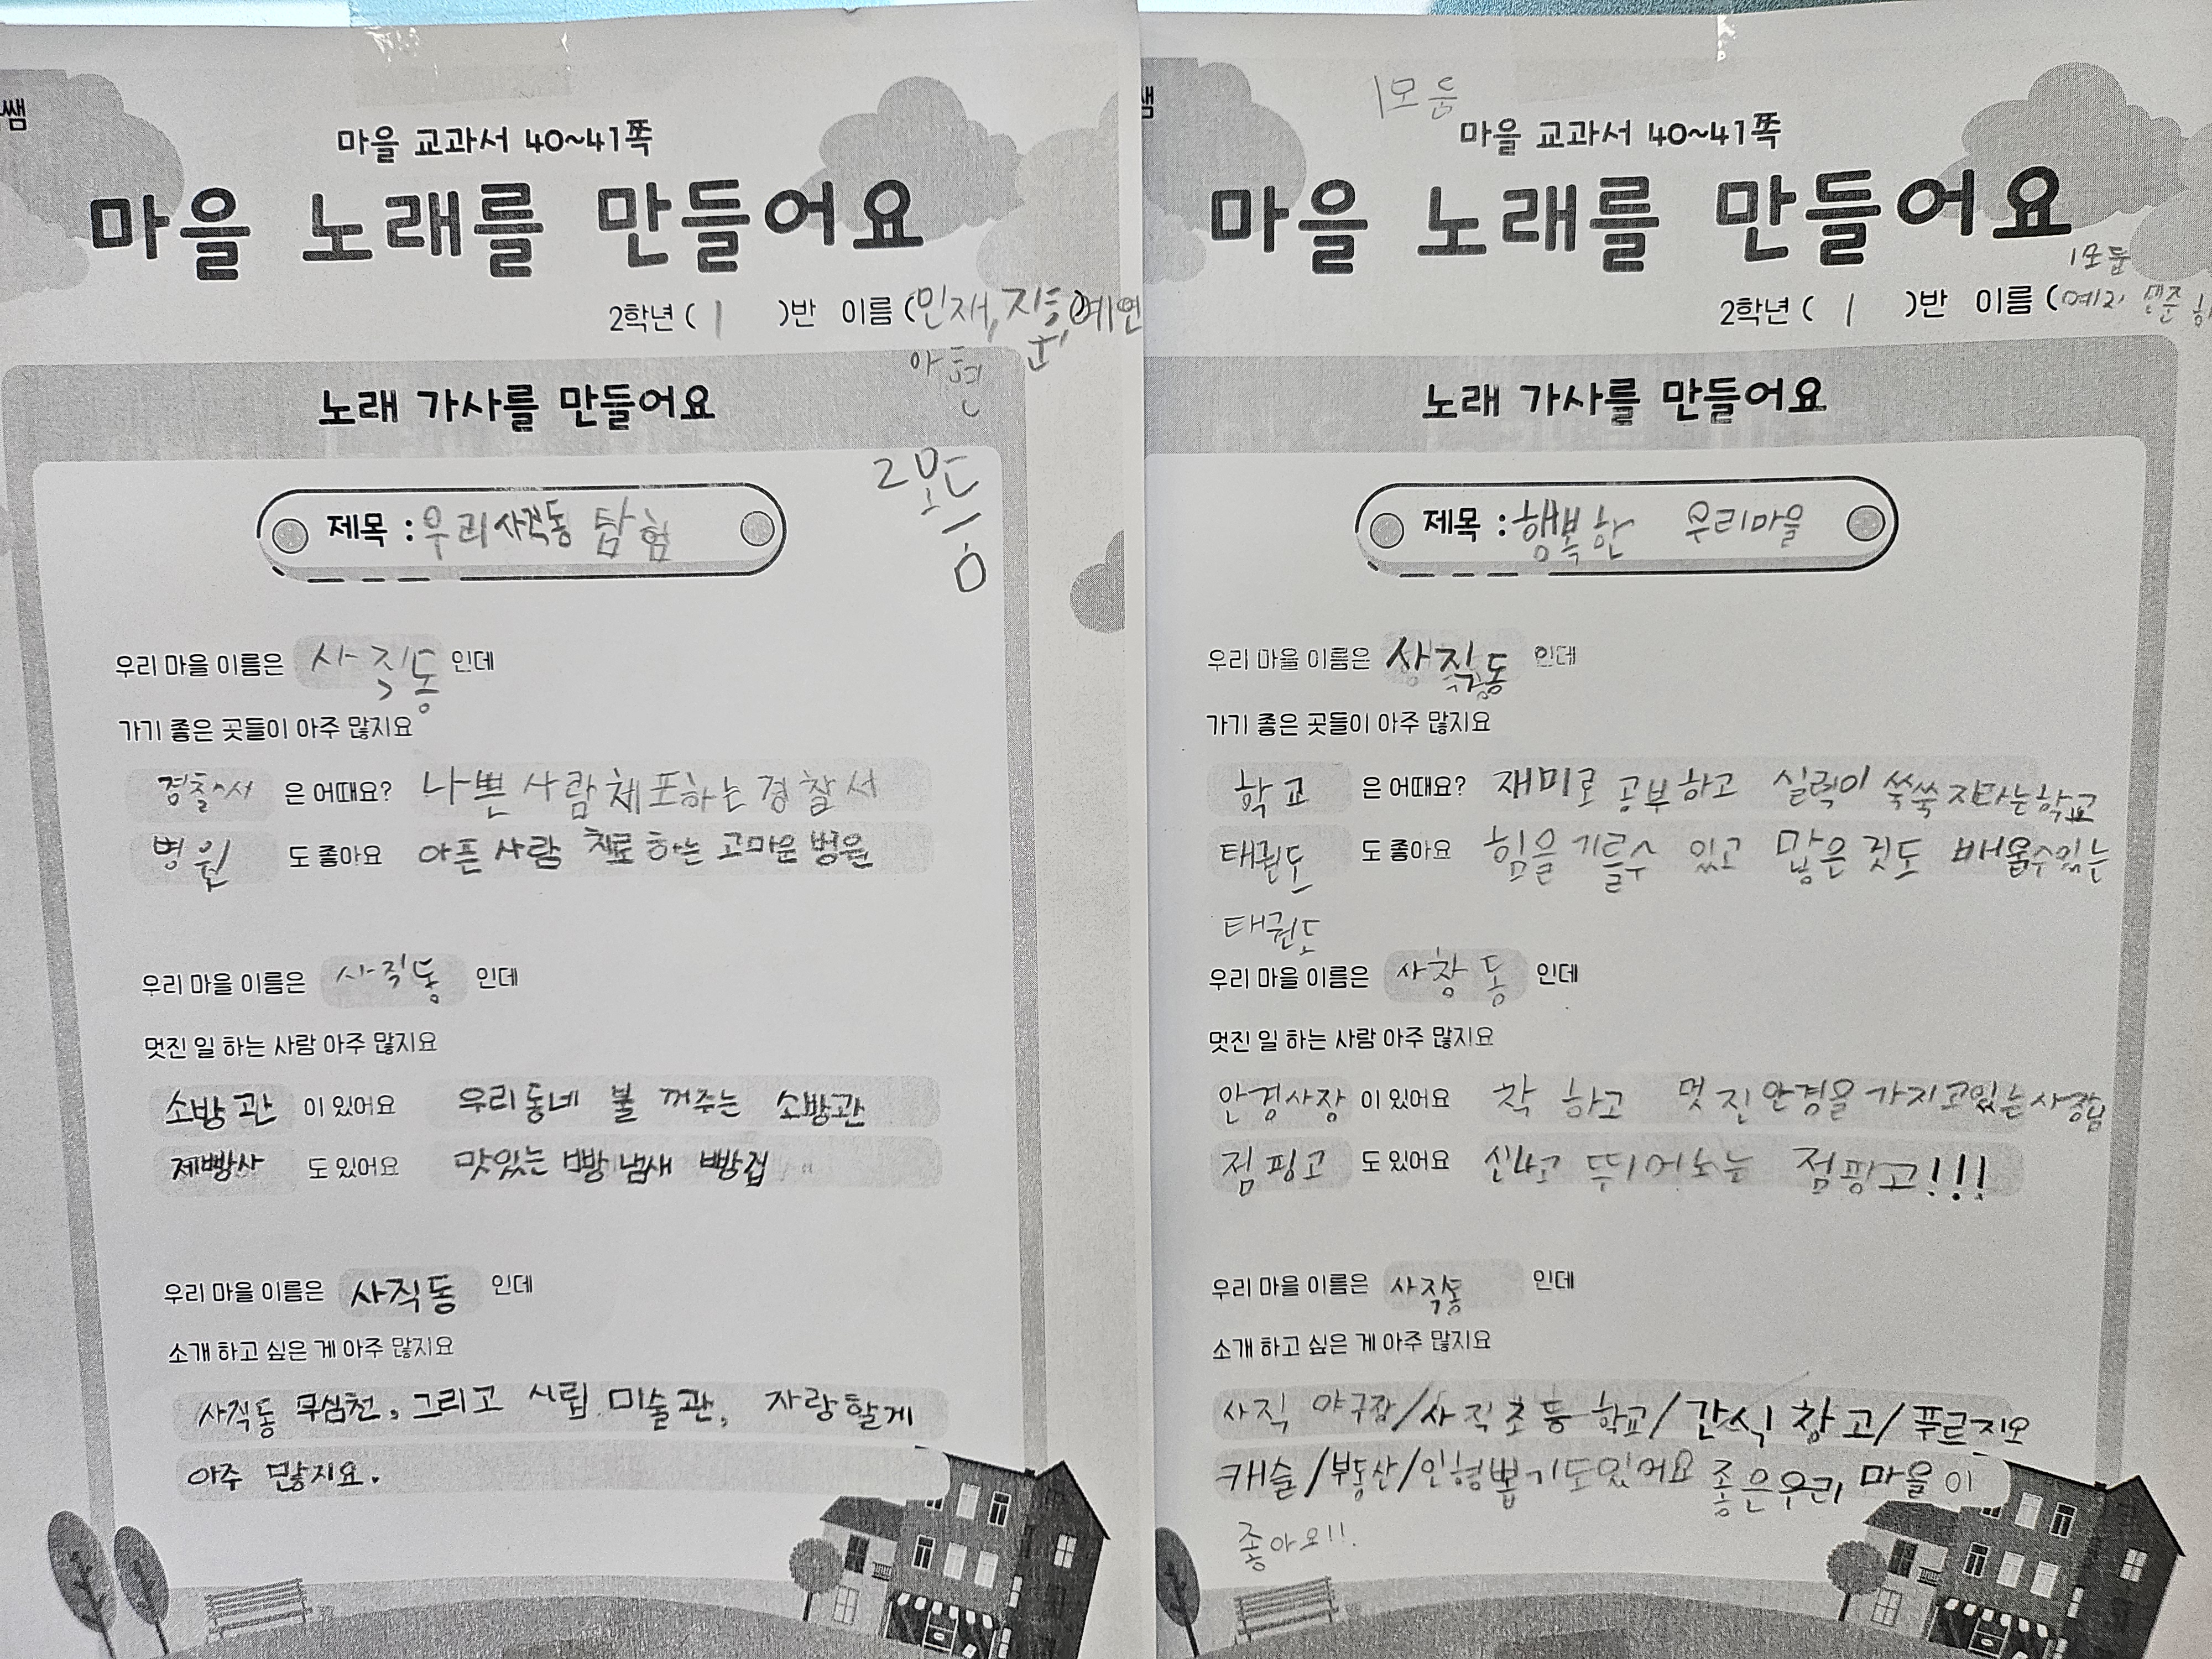 쌤
마을 교과서 40~41쪽
마을 노래를 만들어요
2학년 ( 1 )반 이름 (민재, 지훈, 예연
아현
노래 가사를 만들어요
2모둠
제목 : 우리 사직동 탐험
우리 마을 이름은 사직동 인데
가기 좋은 곳들이 아주 많지요
경찰서 은 어때요? 나쁜 사람 체포하는 경찰서
병원 도 좋아요 아픈 사람 치료 하는 고마운 병원
우리 마을 이름은 사직동 인데
멋진 일 하는 사람 아주 많지요
소방관 이 있어요 우리동네 불 꺼주는 소방관
제빵사 도 있어요 맛있는 빵 냄새 빵집
우리 마을 이름은 사직동 인데
소개 하고 싶은 게 아주 많지요
사직동 무심천, 그리고 시립 미술관, 자랑할게
아주 많지요.
쌤
1모둠
마을 교과서 40~41쪽
마을 노래를 만들어요
1모둠
2학년 ( 1 )반 이름 (
노래 가사를 만들어요
제목 : 행복한 우리마을
우리 마을 이름은 사직동 인데
가기 좋은 곳들이 아주 많지요
학교 은 어때요? 재미로 공부하고 실력이 쑥쑥 자라는 학교
태권도 도 좋아요 힘을 기를수 있고 많은 것도 배울수있는
태권도
우리 마을 이름은 사창동 인데
멋진 일 하는 사람 아주 많지요
안경사장 이 있어요 착하고 멋진 안경을 가지고있는 사장님
점핑고 도 있어요 신나고 뛰어노는 점핑고!!!
우리 마을 이름은 사직동 인데
소개 하고 싶은 게 아주 많지요
사직 야구장/사직초등학교/간식창고/푸르지오
캐슬/부동산/인형뽑기도있어요 좋은우리 마을이
좋아요!!